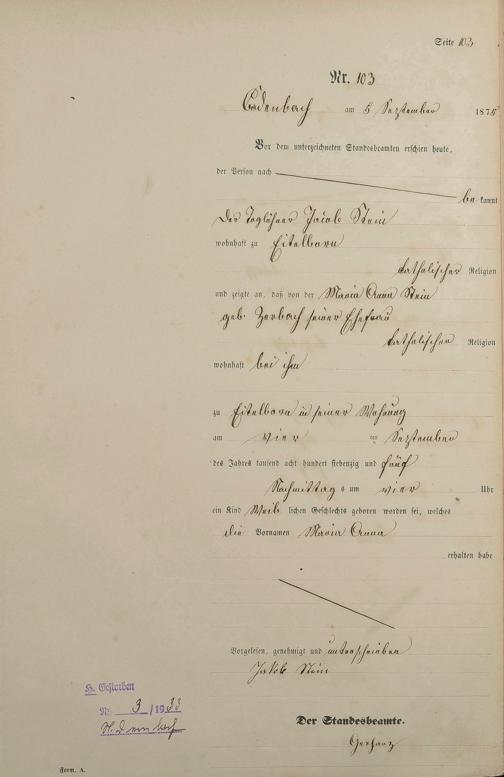 Seite 103
Nr. 103
Cadenbach am 5 September 1875
Vor dem unterzeichneten Standesbeamten erschien heute,
der Person nach
be kannt
der Taglöhner Jacob Stein
wohnhaft zu Eitelborn
katholischer Religion
und zeigte an, daß von der Maria Anna Stein
geb. Zerbach seiner Ehefrau
katholischer Religion
wohnhaft bei ihm
zu Eitelborn in seiner Wohnung
am vier ten September
des Jahres tausend acht hundert siebenzig und fünf
Nachmittag s um vier Uhr
ein Kind Weib lichen Geschlechts geboren worden sei, welches
die Vornamen Maria Anna
erhalten habe
Vorgelesen, genehmigt und unterschrieben
Jakob Stein
H. Gestorben
Nr. 3 / 1933
Der Standesbeamte.
Gerharz
Form. A.